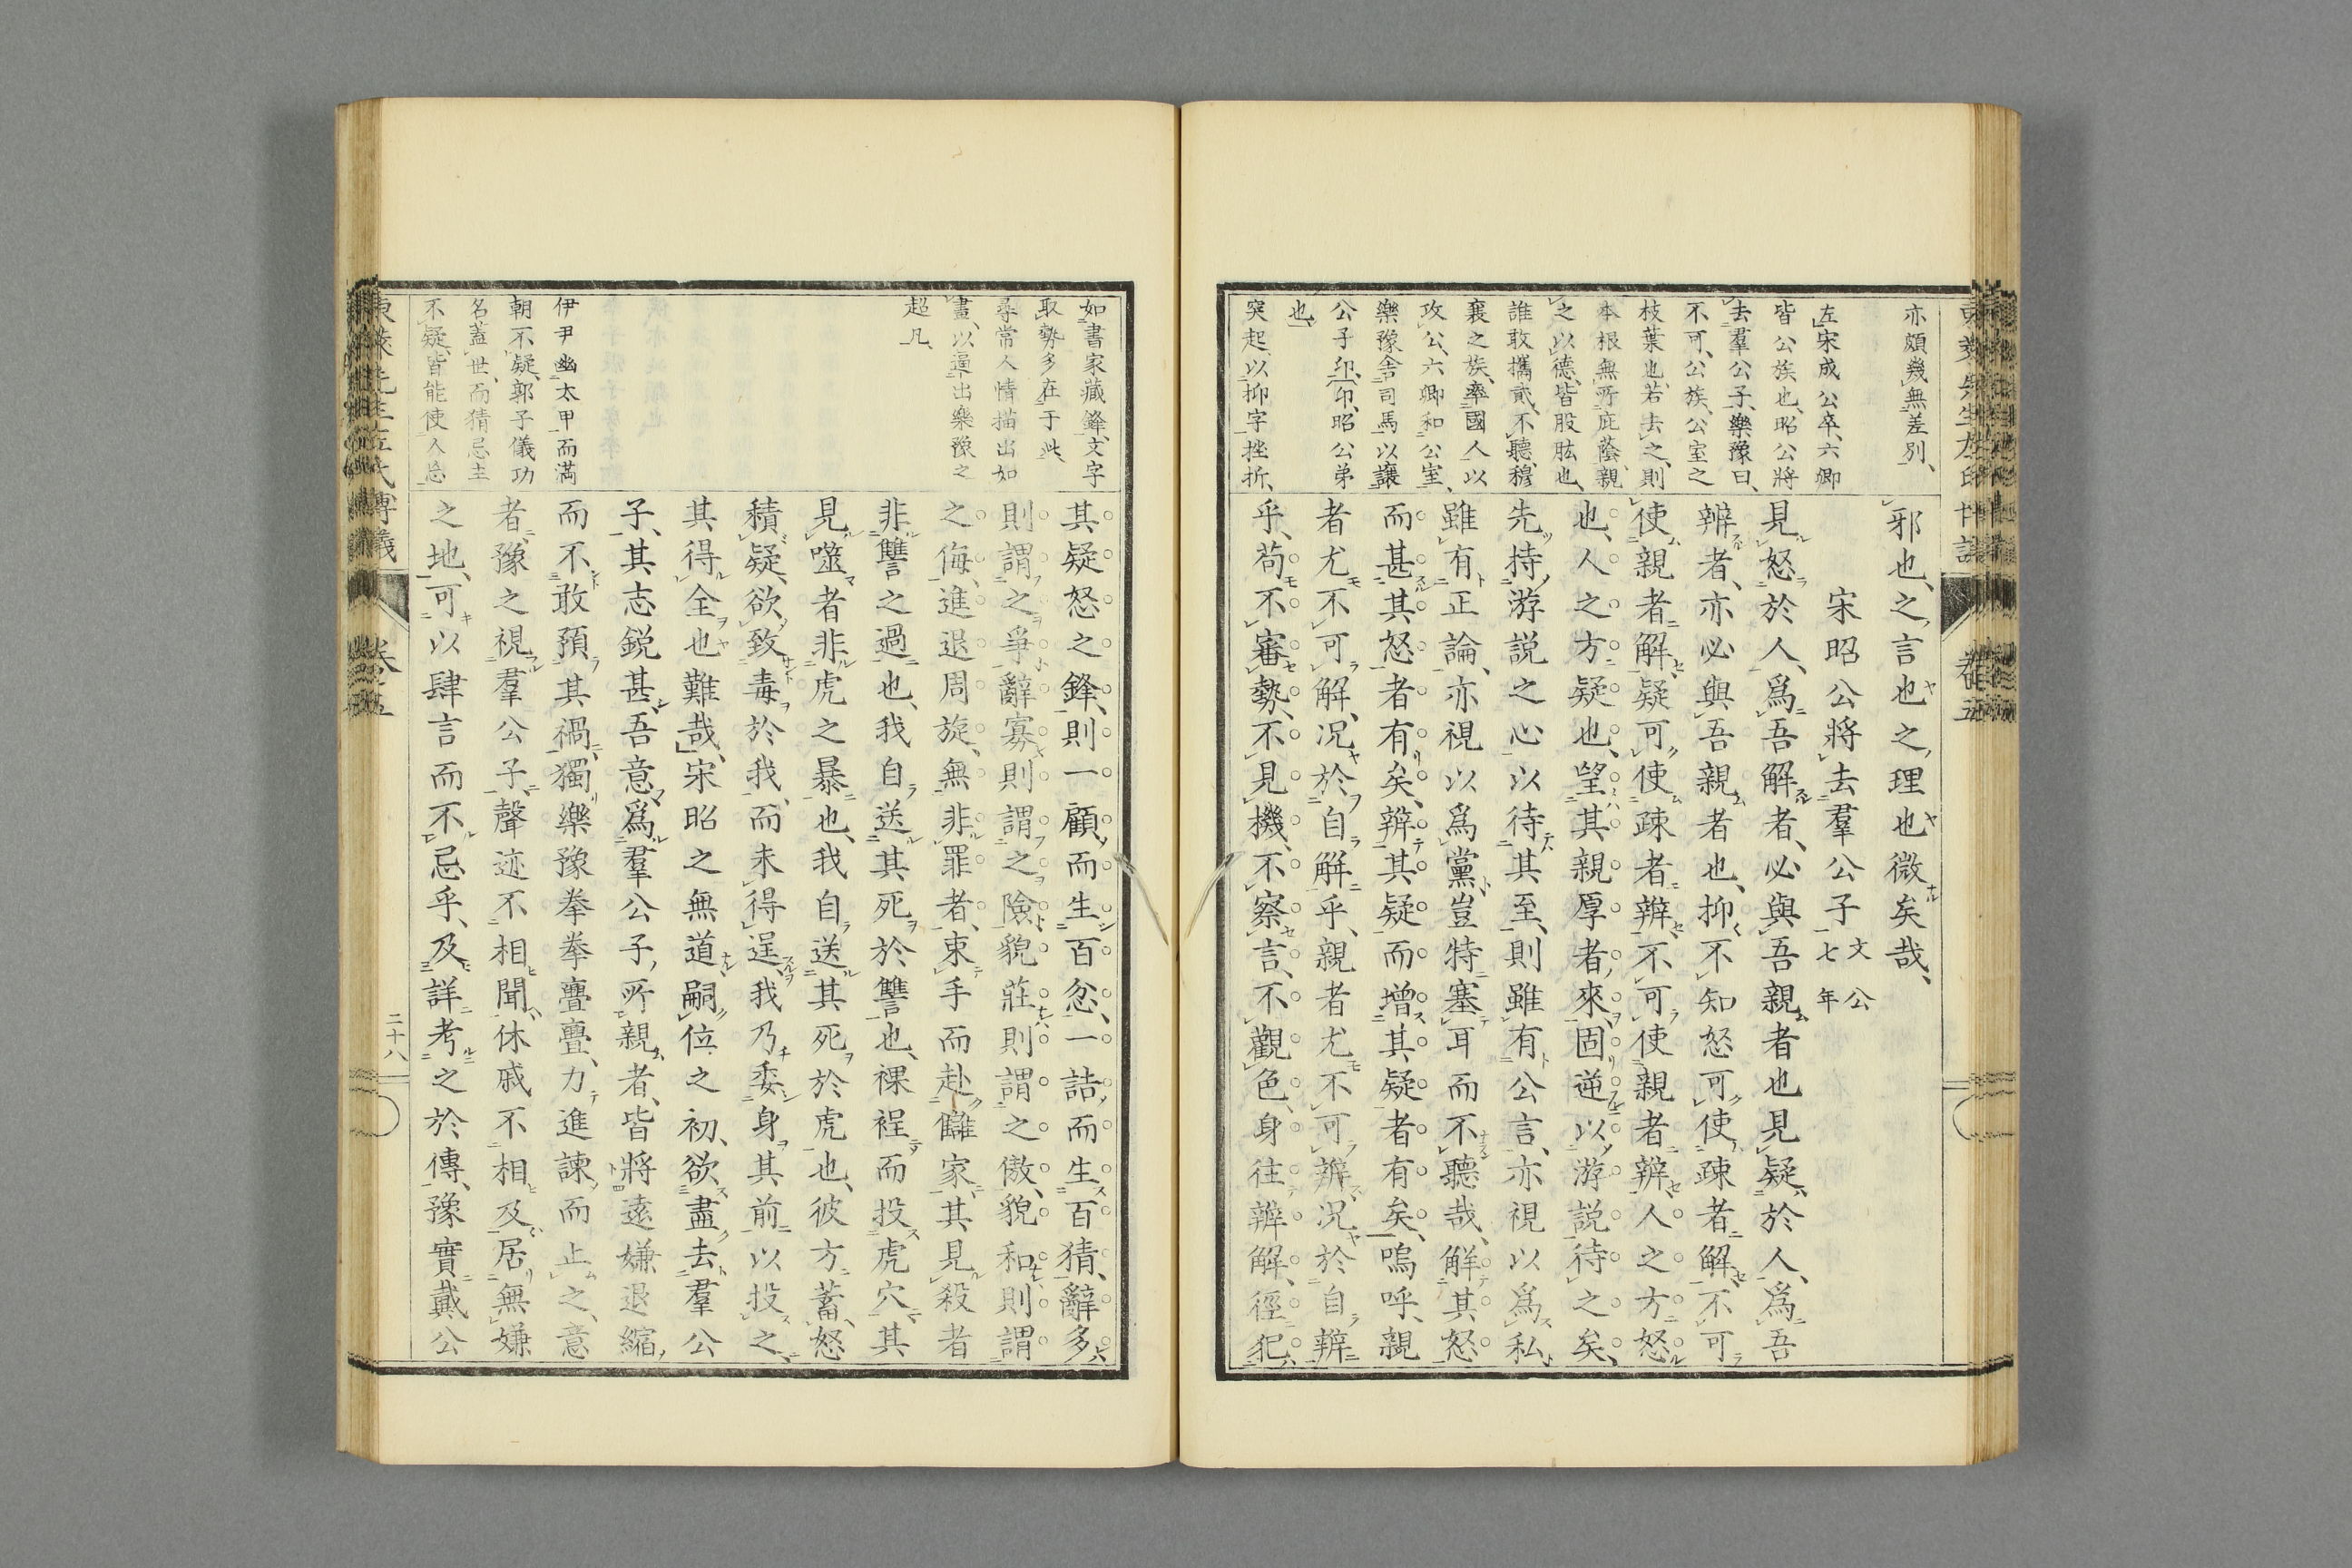 亦頗幾無差別、
左宋成公卒、六卿
皆公族也、昭公將
去羣公子、樂豫曰、
不可、公族、公室之
枝葉也、若去之、則
本根無所庇蔭、親
之以德、皆股肱也、
誰敢攜貳、不聽、穆
襄之族、率國人以
攻公、六卿和公室、
樂豫舍司馬以讓
公子卬、卬、昭公弟
也、
突起、以抑字挫折、
邪也、之言也之理也微矣哉、
宋昭公將去羣公子文公七年
見怒於人、爲吾解者、必與吾親者也見疑、於人、爲吾
辨者、亦必與吾親者也、抑不知怒可使疎者解、不可
使親者解、疑可使疎者辨、不可使親者辨、人之方怒
也、人之方疑也、望其親厚者來、固逆以游説待之矣、
先持游説之心以待其至、則雖有公言、亦視以爲私、
雖有正論、亦視以爲黨、豈特塞耳而不聽哉、解其怒
而甚其怒者有矣、辨其疑而增其疑者有矣、嗚呼、親
者尤不可解、況於自解乎、親者尤不可辨、況於自辨
乎、苟不審勢、不見機、不察言、不觀色、身往辨解、徑犯
如書家藏鋒、文字
取勢多在于此
尋常人情描出如
畫、以逼出樂豫之
超凡、
伊尹幽太甲而滿
朝不疑、郭子儀功
名蓋世、而猜忌主
不疑、皆能使人忘
其疑怒之鋒、則一顧、而生百忿、一詰、而生百猜、辭多
則謂之爭、辭寡則謂之險、貌莊則謂之傲、貌和則謂
之侮、進退周旋、無非罪者、束手而赴讎家、其見殺者
非讐之過也、我自送其死於讐也、裸裎而投虎穴、其
見噬者非虎之暴也、我自送其死於虎也、彼方蓄怒
積疑、欲致毒於我、而未得逞、我乃委身其前以投之、
其得全也難哉、宋昭之無道、嗣位之初、欲盡去羣公
子、其志鋭甚、吾意爲羣公子所親者、皆將遠嫌退縮
而不敢預其禍、獨樂豫拳拳亹亹、力進諫而止之、意
者、豫之視羣公子、聲迹不相聞、休戚不相及、居無嫌
之地、可以肆言而不忌乎、及詳考之於傳、豫實戴公
卷之五
二十八